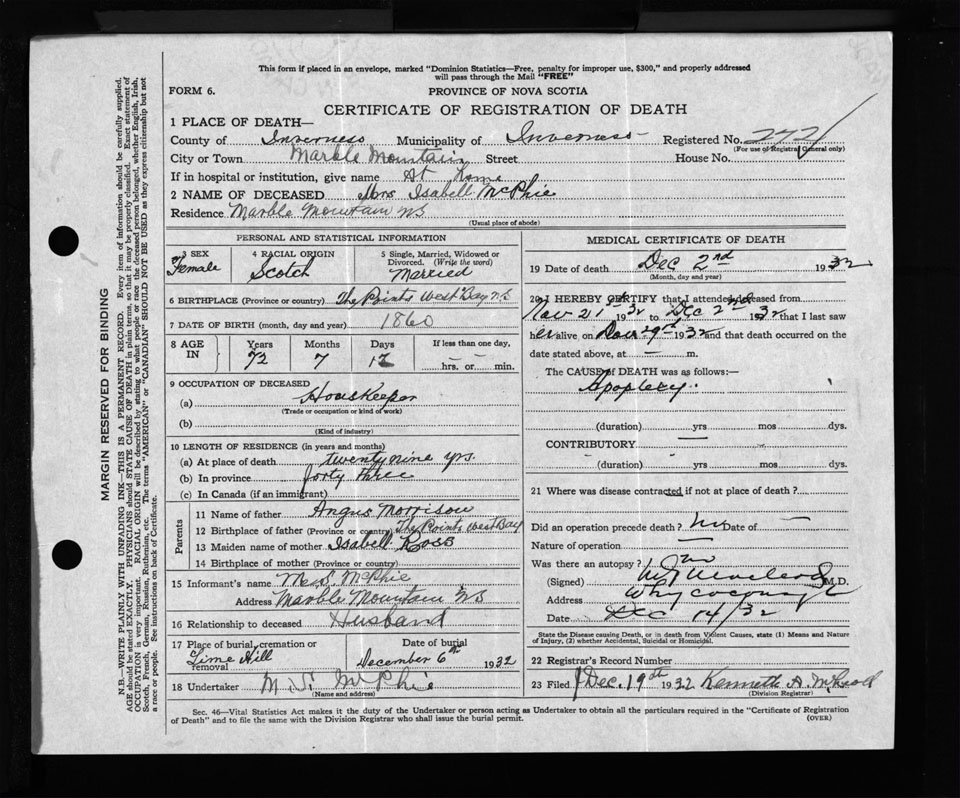 This form if placed in an envelope, marked "Dominion Statistics—Free, penalty for improper use, $300," and properly addressed
will pass through the Mail "FREE"
FORM 6. PROVINCE OF NOVA SCOTIA
CERTIFICATE OF REGISTRATION OF DEATH
1 PLACE OF DEATH—
County of Inverness Municipality of Inverness Registered No. 2721
(For use of Registrar General only)
City or Town Marble Mountain Street House No.
If in hospital or institution, give name At home
2 NAME OF DECEASED Mrs Isabell McPhie
Residence Marble Mountain NS
(Usual place of abode)
PERSONAL AND STATISTICAL INFORMATION
3 SEX Female
4 RACIAL ORIGIN Scotch
5 Single, Married, Widowed or Divorced. (Write the word) Married
6 BIRTHPLACE (Province or country) The Points West Bay NS
7 DATE OF BIRTH (month, day and year) 1860
8 AGE IN Years 72 Months 7 Days 12 If less than one day, — hrs. or — min.
9 OCCUPATION OF DECEASED
(a) Houskeeper
(Trade or occupation or kind of work)
(b)
(Kind of industry)
10 LENGTH OF RESIDENCE (in years and months)
(a) At place of death twenty nine yrs.
(b) In province forty three
(c) In Canada (if an immigrant)
Parents
11 Name of father Angus Morrison
12 Birthplace of father (Province or country) The Points West Bay
13 Maiden name of mother Isabell Ross
14 Birthplace of mother (Province or country)
15 Informant's name M. S. McPhie
Address Marble Mountain NS
16 Relationship to deceased Husband
17 Place of burial, cremation or removal Lime Hill
Date of burial December 6th 1932
18 Undertaker M. S. McPhie
(Name and address)
MEDICAL CERTIFICATE OF DEATH
19 Date of death Dec 2nd 1932
(Month, day and year)
20 I HEREBY CERTIFY that I attended deceased from
Nov 21st 1932 to Dec 2nd 1932 that I last saw
her alive on 1932 and that death occurred on
date stated above, at — m.
The CAUSE of DEATH was as follows:—
Apoplexy
(duration) yrs mos dys.
CONTRIBUTORY —
(duration) yrs mos dys.
21 Where was disease contracted if not at place of death?
Did an operation precede death? No Date of —
Nature of operation —
Was there an autopsy? No
(Signed) McLeod M.D.
Address Whycocomagh
Date Dec 14/32
State the Disease causing Death, or in death from Violent Causes, state (1) Means and Nature
of Injury, (2) whether Accidental, Suicidal or Homicidal.
22 Registrar's Record Number
23 Filed Dec. 19th 1932 Kenneth A. McLeod
(Division Registrar)
Sec. 46—Vital Statistics Act makes it the duty of the Undertaker or person acting as Undertaker to obtain all the particulars required in the "Certificate of Registration
of Death" and to file the same with the Division Registrar who shall issue the burial permit. (OVER)
MARGIN RESERVED FOR BINDING
N.B.—WRITE PLAINLY WITH UNFADING INK—THIS IS A PERMANENT RECORD. Every item of information should be carefully supplied.
AGE should be stated EXACTLY. PHYSICIANS should STATE CAUSE OF DEATH in plain terms so that it may be properly classified. Exact statement of
OCCUPATION is very important. RACIAL ORIGIN will be described by stating to what people or race the deceased person belonged, whether English, Irish,
Scotch, French, German, Russian, Ruthenian, etc. The terms "AMERICAN" or "CANADIAN" SHOULD NOT BE USED as they express citizenship but not
a race or people. See instructions on back of Certificate.